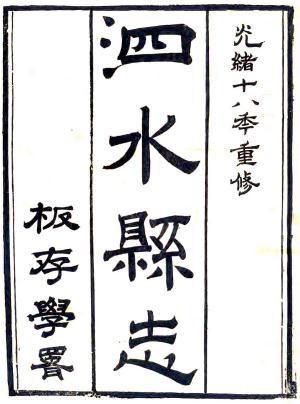 光緒十八季重修
泗水縣志
板存學署